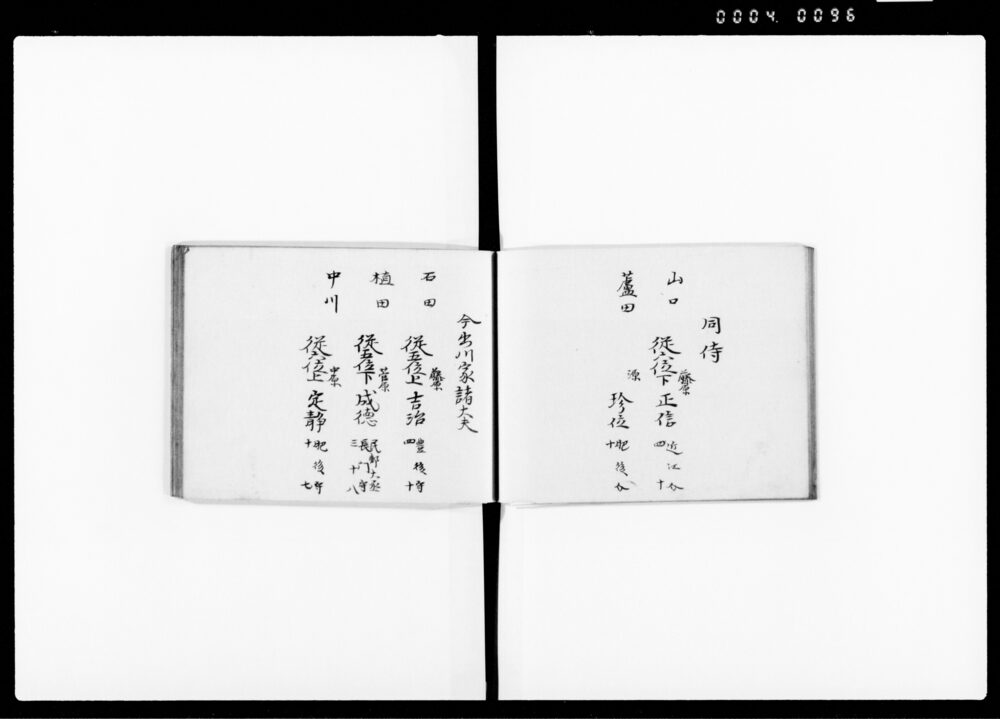 0004 0096
同侍
山口 従六位下 藤原 正信 近江介 四十
蘆田 源 珍位 肥後介 十
今出川家諸大夫
石田 従五位上 藤原 吉治 豊後守 四十
植田 従五位下 菅原 成徳 民部大丞 長門守 三十八
中川 従六位上 中原 定静 肥後守 十七